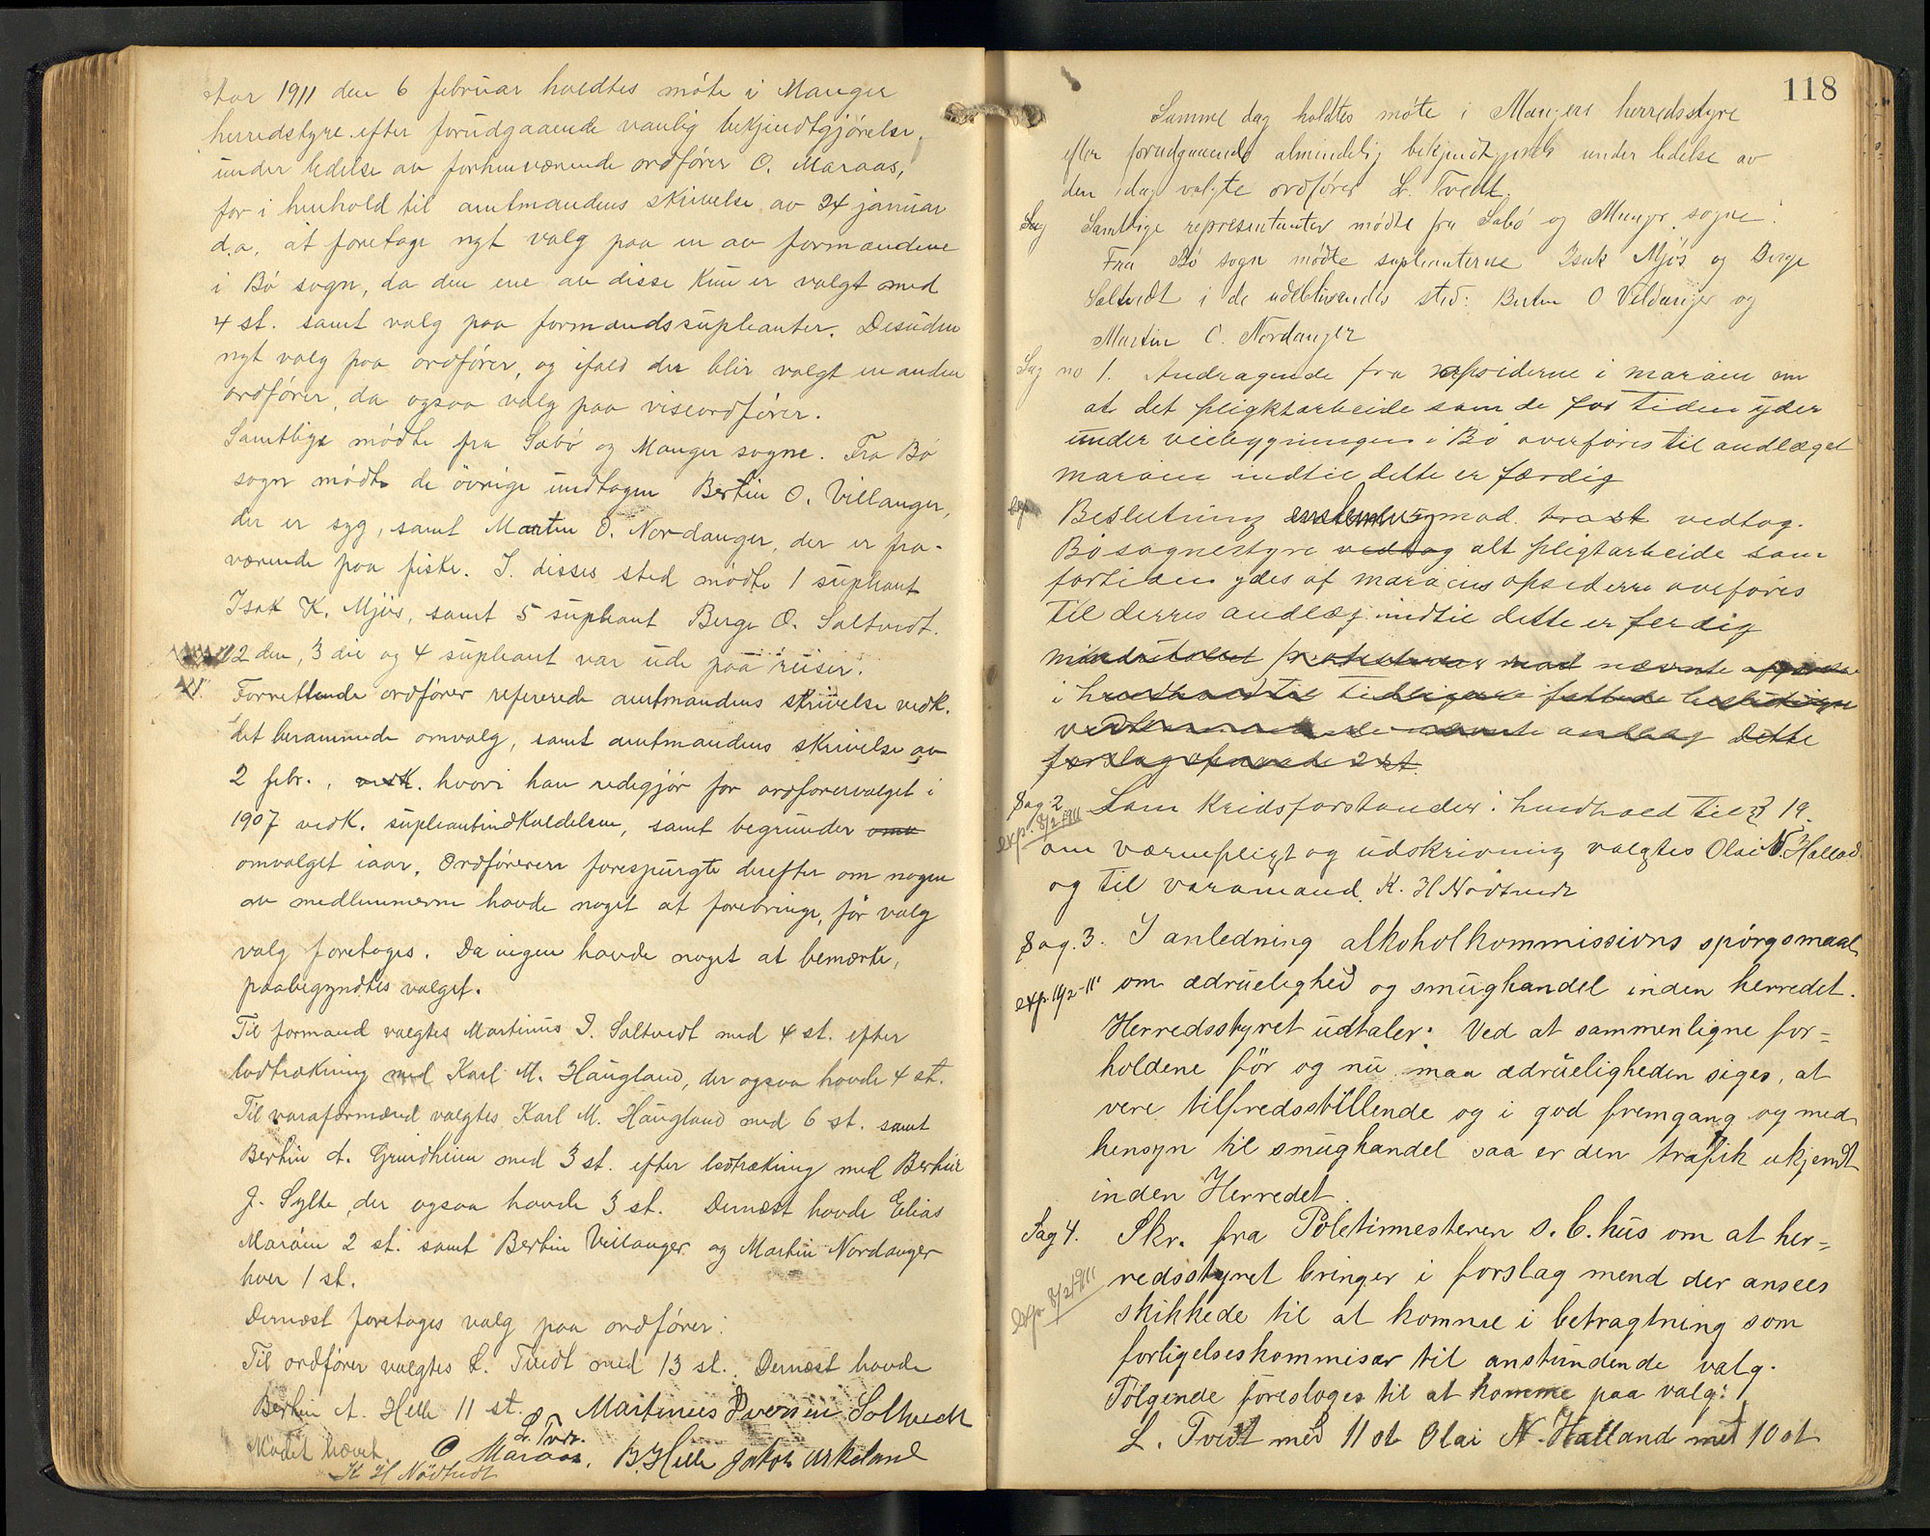 Aar 1911 den 6 februar holdtes móte i Manger
herredstyre efter forudgaaende vanlig bekjendtgjórelse,
under ledelse av forhenværende ordfórer O. Maraas,
for i henhold til amtmandens skrivelse av 24 januar
d.a. at foretage nyt valg paa en av formændene
i Bó sogn, da den ene av disse kun er valgt med
4 st. samt valg paa formandssupleanter. Desuden
nyt valg paa ordfórer, og ifald der blir valgt en anden
ordfórer, da ogsaa valg paa viseordfórer.
Samtlige módte fra Sæbó og Manger sogne. Fra Bó
sogn módte de övrige undtagen Bertin O. Villanger,
der er syg, samt Martin O. Nordanger, der er fra-
værende paa fiske. I disses sted módte 1 supleant
Isak K. Mjós, samt 5 supleant Berge O. Saltvedt.
2 den, 3 die og 4 supleant var ude paa reiser.
Forrettende ordfórer refererede amtmandens skrivelse vedk.
det berammede omvalg, samt amtmandens skrivelse av
2 febr., vedk. hvori han redegjór for ordforervalget i
1907 vedk. supleantindkaldelsen, samt begrunder omv
omvalget iaar. Ordfóreren forespurgte derefter om nogen
av medlemmerne havde noget at forebringe, fór valg
valg foretages. Da ingen havde noget at bemærke,
paabegyndtes valget.
Til formand valgtes Martinus I. Saltvedt med 4 st. efter
lodtrækning med Karl M. Haugland, der ogsaa havde 4 st.
Til varaformænd valgtes Karl M. Haugland med 6 st. samt
Bertin A. Grindheim med 3 st. efter lodtrækning med Bertin
J. Sylte, der ogsaa havde 3 st. Dernæst havde Elias
Maróin 2 st. samt Bertin Villanger og Martin Nordanger
hver 1 st.
Dernæst foretages valg paa ordfórer:
Til ordfórer valgtes L. Tvedt med 13 st. Dernæst havde
Bertin A. Helle 11 st. Martinus Iversen Saltvedt
Mödet hævet. L. Tvedt
O Maraas. B. Helle Jakob Urkeland
K H Nódtvedt
118
Samme dag holdtes móte i Mangers herredsstyre
efter forudgaaende almindelig bekjendtgjórelse under ledelse av
den idag valgte ordfórer L. Tvedt.
Sag Samtlige representanter módte fra Sæbó og Manger sogne.
Fra Bó sogn módte supleanterne Isak Mjós og Berge
Saltvedt i de udeblivendes sted: Bertin O Villanger og
Martin C. Nordanger
Sag no 1. Andragende fra opsiderne i maróin om
at det pligktarbeide som de for tiden yder
under veibygningen i Bó overfóres til andlæget
maróin indtil dette er færdig
Beslutning enstemmig mod vedtog.
Bósognestyre vedtog alt pligtarbeide som
fortiden ydes af maróins opsiderne overfóres
til derres andlæg indtil dette er ferdig
mindretallet protesterer mod nævnte
i henhold til tidligere fattede beslutning
nævnte andrag Dette
forslag 2 st.
Sag 2 Som Kridsforstander i henhold til § 19.
exp. 8/2 1911
om værnepligt og udskrivning valgtes Olai N. Halland
og til varamand K. H Nódtvedt
Sag. 3. I anledning alkoholkommissions spórgsmaal
exp. 14/2-11 om ædruelighed og smughandel inden herredet.
Herredsstyret udtaler: Ved at sammenligne for=
holdene för og nu maa ædrueligheden siges, at
vere tilfredsstillende og i god fremgang og med
hensyn til smughandel saa er den trafik ukjendt
inden Herredet.
Sag 4. Skr. fra Poletimesteren s. b. hus om at her=
exp 8/2 1911 redsstyret bringer i forslag mend der ansees
skikkede til at komme i betragtning som
forligelseskommisær til anstundende valg.
Følgende foreslages til at komme paa valg:
L. Tvedt med 11 st Olai N. Halland med 10 st